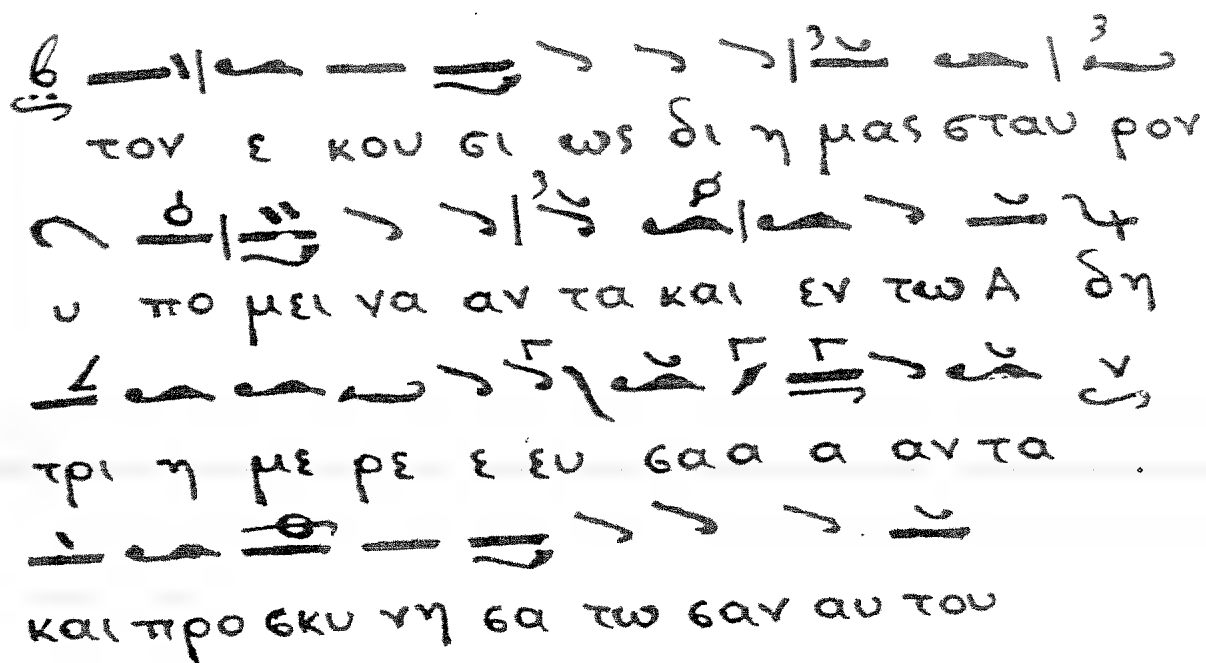 τον ε κου σι ως δι η μας σταυ ρον
υ πο μει να αν τα και εν τω Α δη
τρι η με ρε ε ευ σαα α αν τα .
και προ σκυ νη σα τω σαν αυ του